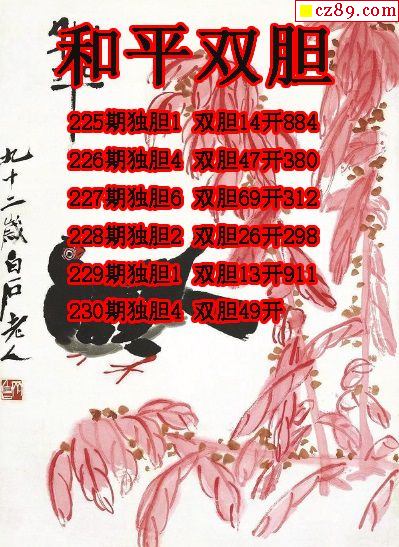 cz89.com
和平双胆
225期独胆1 双胆14开884
226期独胆4 双胆47开380
227期独胆6 双胆69开312
228期独胆2 双胆26开298
229期独胆1 双胆13开911
230期独胆4 双胆49开
九十二岁白石老人